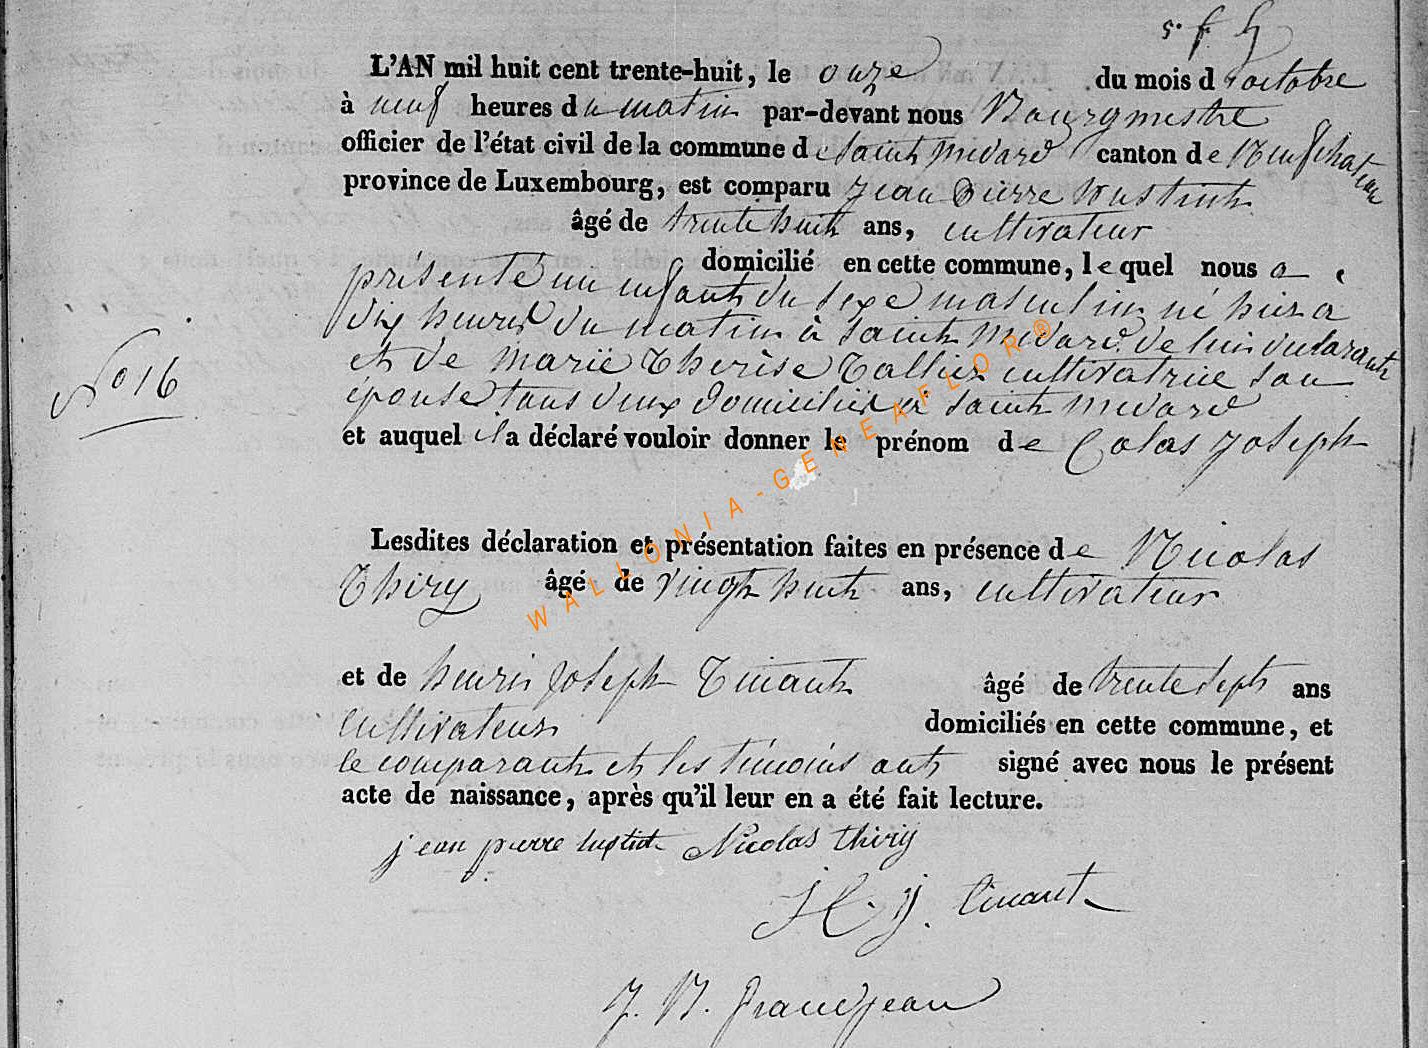 5. f. 5
L'AN mil huit cent trente-huit, le onze du mois d'octobre
à neuf heures du matin par-devant nous Bourgmestre
officier de l'état civil de la commune de Saint Médard canton de Neufchateau
province de Luxembourg, est comparu Jean Pierre
âgé de trente huit ans, cultivateur
domicilié en cette commune, lequel nous a
présenté un enfant du sexe masculin né hier à
dix heures du matin à Saint Médard de lui déclarant
et de Marie Therèse cultivatrice son
épouse tous deux domiciliés à Saint Médard
N° 16
et auquel il a déclaré vouloir donner le prénom de Colas Joseph
Lesdites déclaration et présentation faites en présence de Nicolas
Thiry âgé de vingt huit ans, cultivateur
et de henri joseph Tinant âgé de trente sept ans
cultivateur domiciliés en cette commune, et
le comparant et les témoins ont signé avec nous le présent
acte de naissance, après qu'il leur en a été fait lecture.
jean pierre Nicolas thiry
H. j. tinant
J. N. grandjean
WALLONIA-GENEAFLOR®